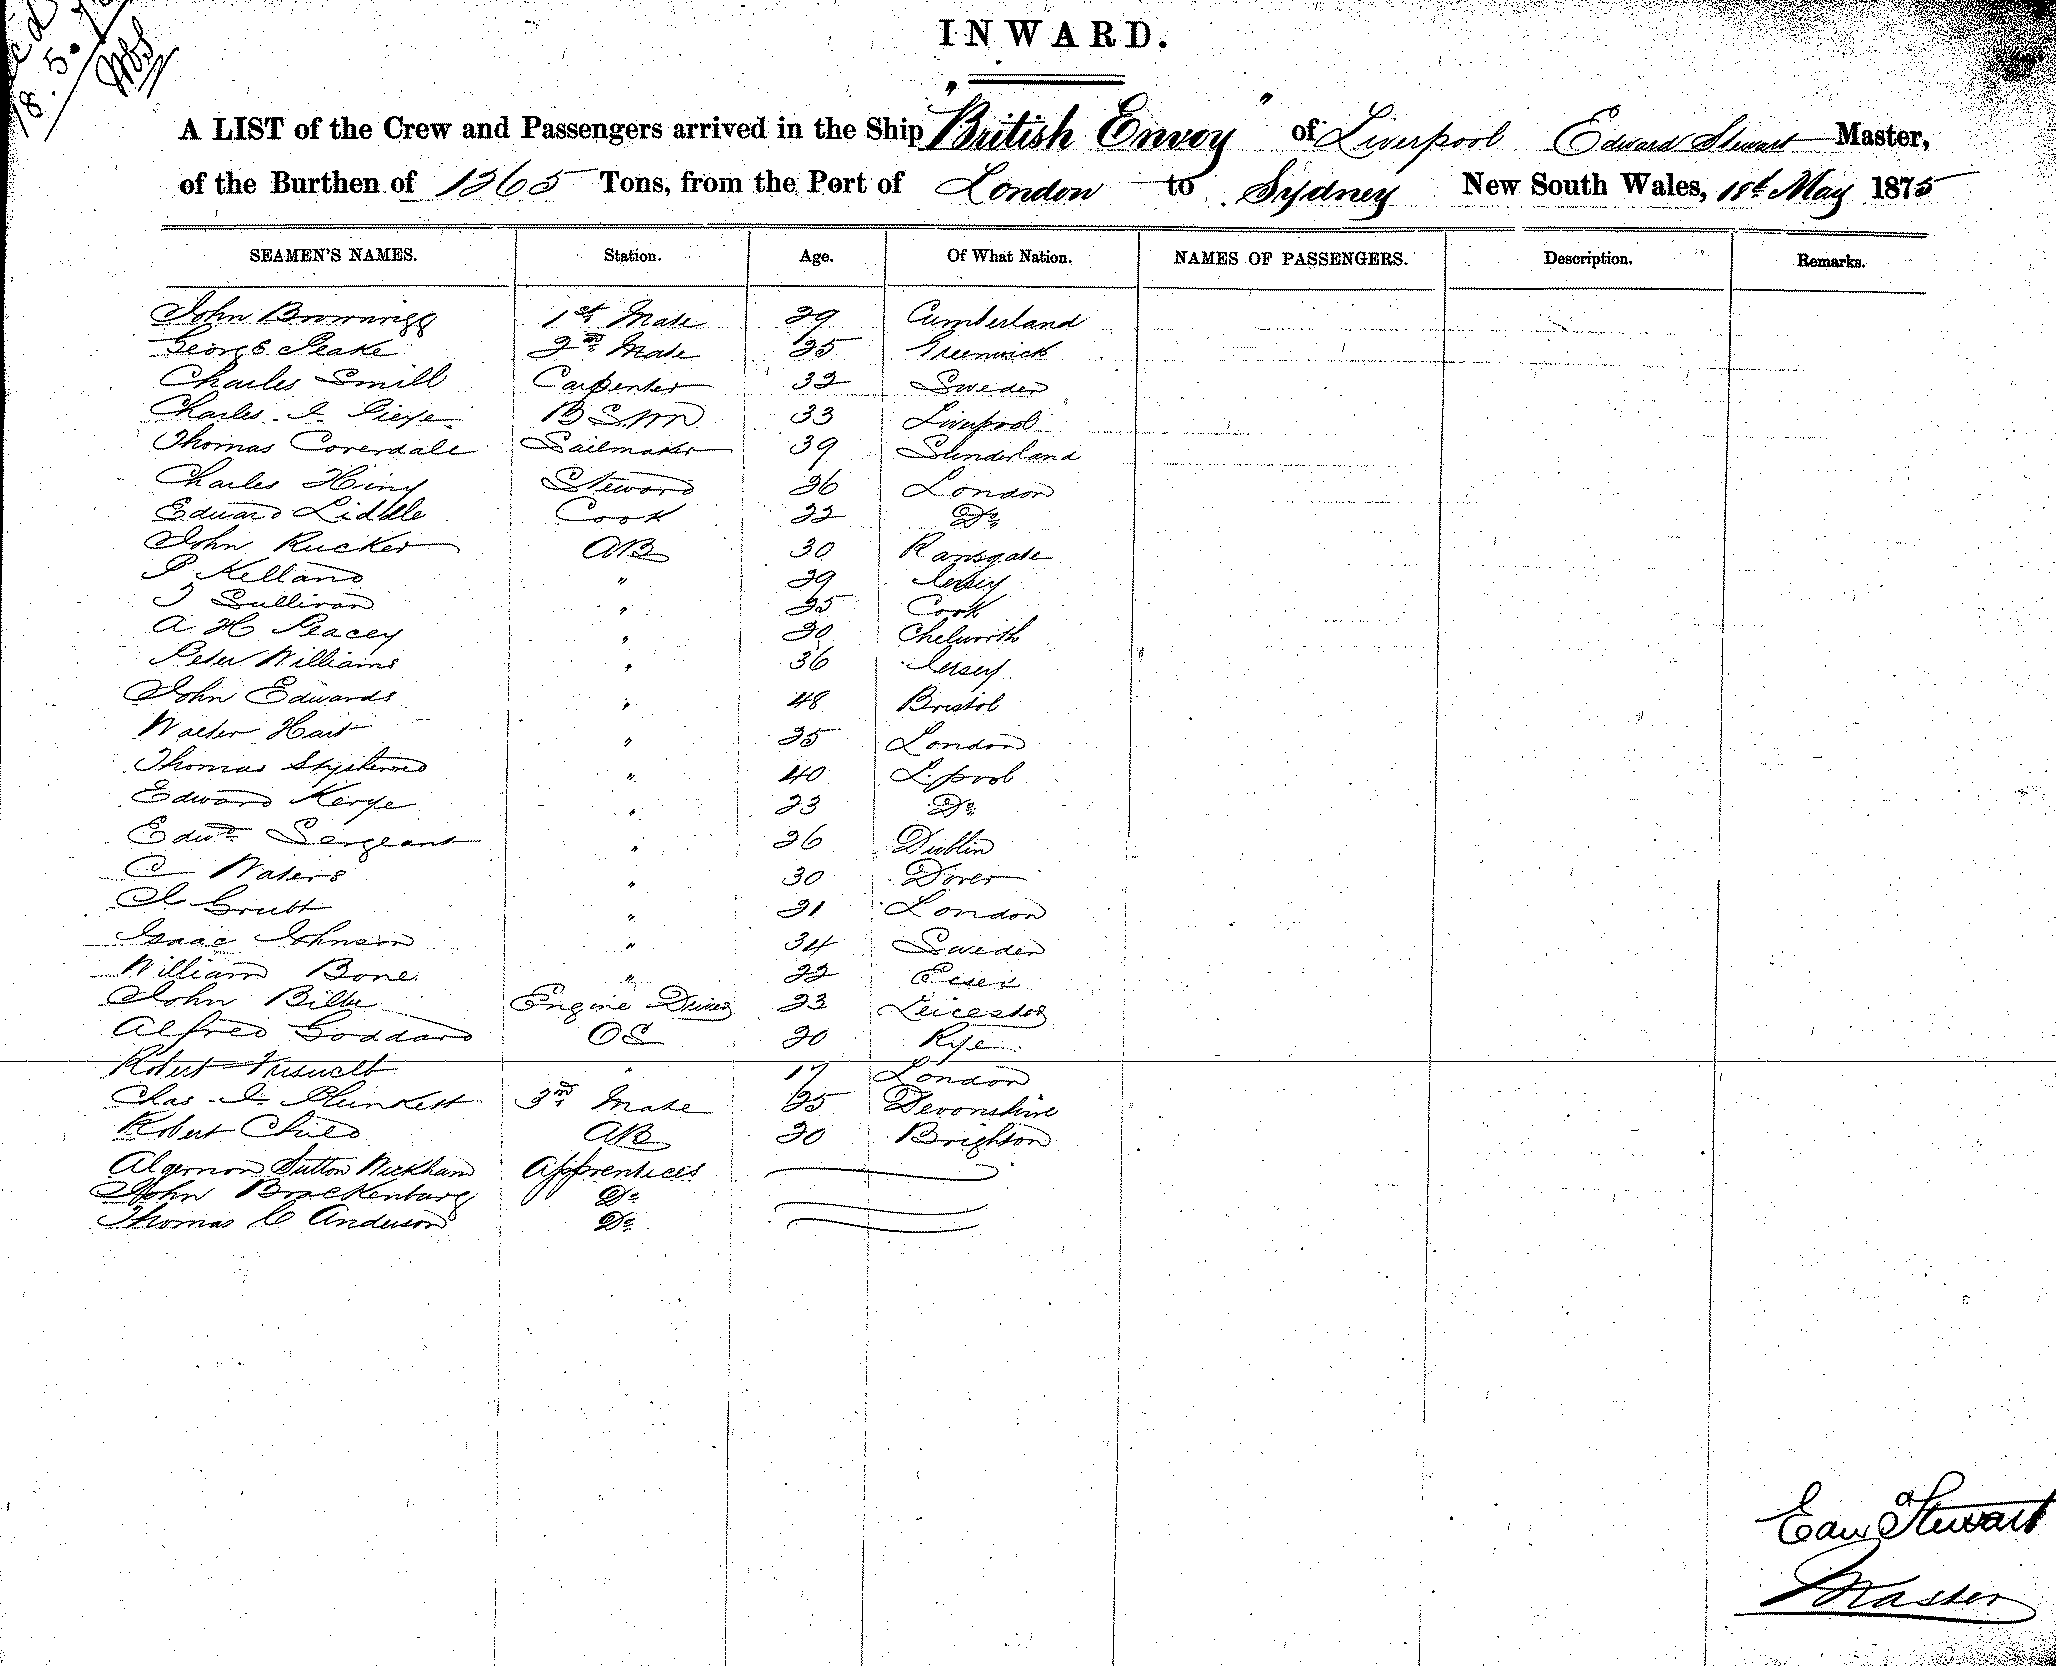 18.5.
INWARD.
A LIST of the Crew and Passengers arrived in the Ship "British Envoy" of Liverpool Edward Stewart Master,
of the Burthen of 1265 Tons, from the Port of London to Sydney New South Wales, 18th May 1875
SEAMEN'S NAMES. Station. Age. Of What Nation. NAMES OF PASSENGERS. Description. Remarks.
John Brownrigg 1st Mate 29 Cumberland
George Peake 2nd Mate 25 Greenwick
Charles Smill Carpenter 32 Sweden
Charles 33 Liverpool
Thomas Coverdale Sailmaker 39 Sunderland
Charles Steward 26 London
Edward Liddle Cook 22 Do
John Rucker AB 30 Ramsgate
Kelland " 29 Jersey
Sullivan " 25 Cork
A H Peacey " 20 Chelworth
Peter Williams " 36 Jersey
John Edwards " 48 Bristol
Walter Hart " 25 London
Thomas " 40 L.pool
Edward " 23 Do
Edwd Sergeant " 26 Dublin
C Waters " 30 Dover
Grubb " 21 London
Isaac Johnson " 34 Sweden
William Bone " 22 Essex
John Engine Driver 23 Leicester
Alfred Goddard OS 20 Rye
Robert " 17 London
Chas. Plunkett 3rd Mate 25 Devonshire
Robert Child AB 20 Brighton
Algernon Sutton Wickham Apprentices
John Brackenburg Do
Thomas C Anderson Do
Edwd Stewart
Master